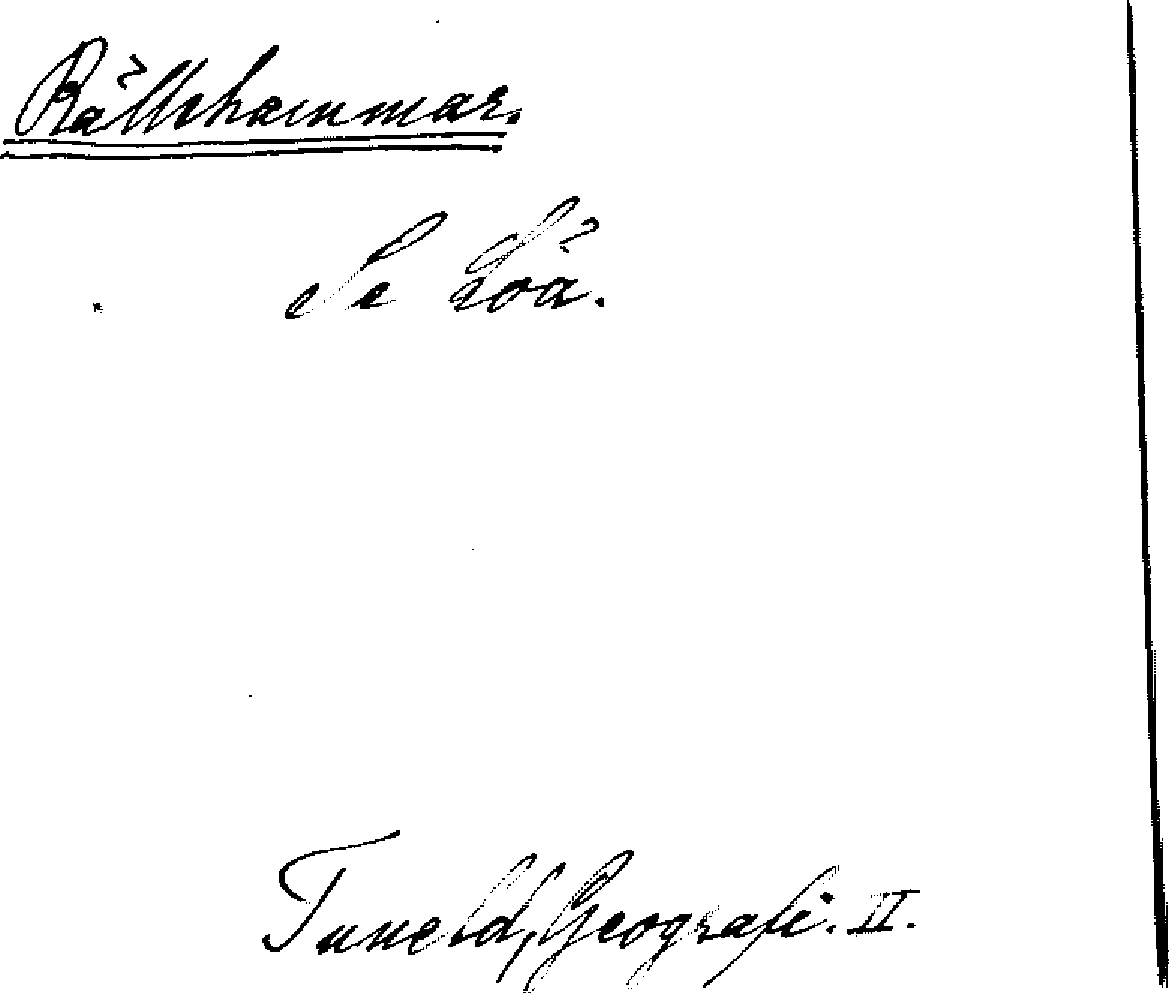 Rällshammar.
Se Löa.
Tuneld, Geografi. II.